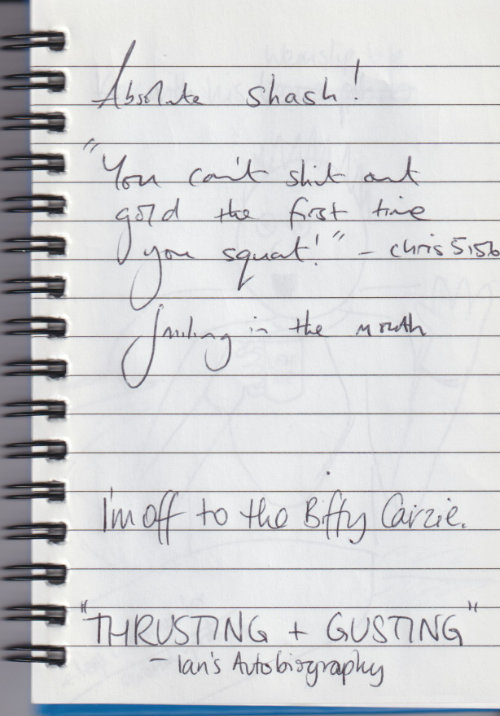 Absolute shash!
"You can't shit out
gold the first time
you squat!" - Chris
Smiling in the mouth
I'm off to the Biffy Cairzie.
"THRUSTING + GUSTING"
- Ian's Autobiography